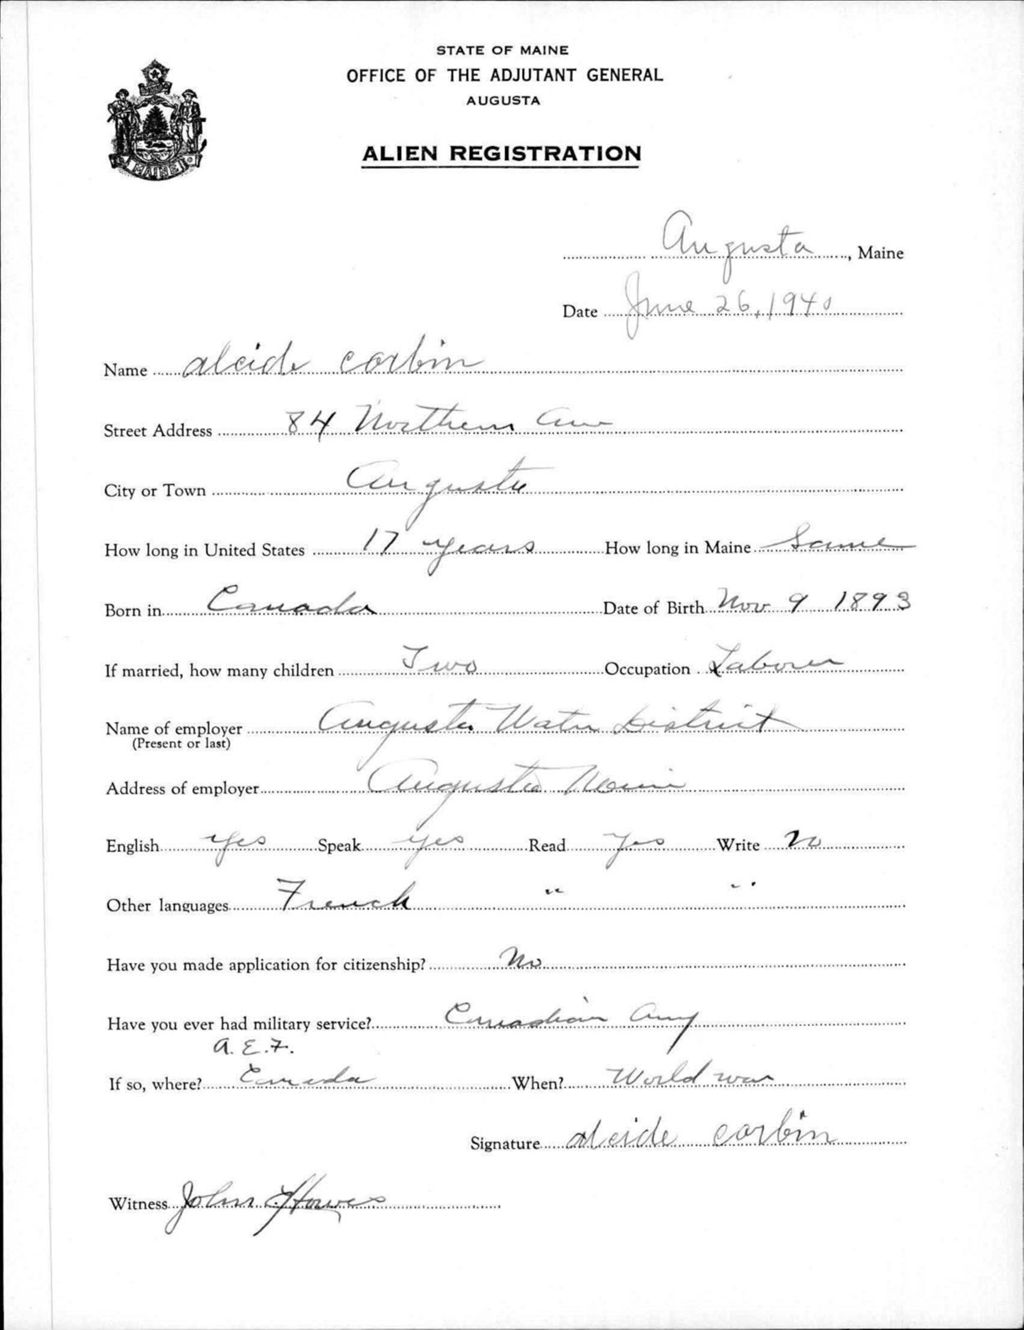 STATE OF MAINE
OFFICE OF THE ADJUTANT GENERAL
AUGUSTA
ALIEN REGISTRATION
MAINE
Augusta, Maine
Date June 26, 1940
Name alcide corbin
Street Address 84 Northern Ave
City or Town Augusta
How long in United States 17 years How long in Maine Same
Born in Canada Date of Birth Nov 9 1893
If married, how many children Two Occupation Laborer
Name of employer Augusta Water District
(Present or last)
Address of employer Augusta Maine
English yes Speak yes Read yes Write No
Other languages French " "
Have you made application for citizenship? No
Have you ever had military service? Canadian Army
A.E.F.
If so, where? Canada When? World war
Signature alcide corbin
Witness John Howes